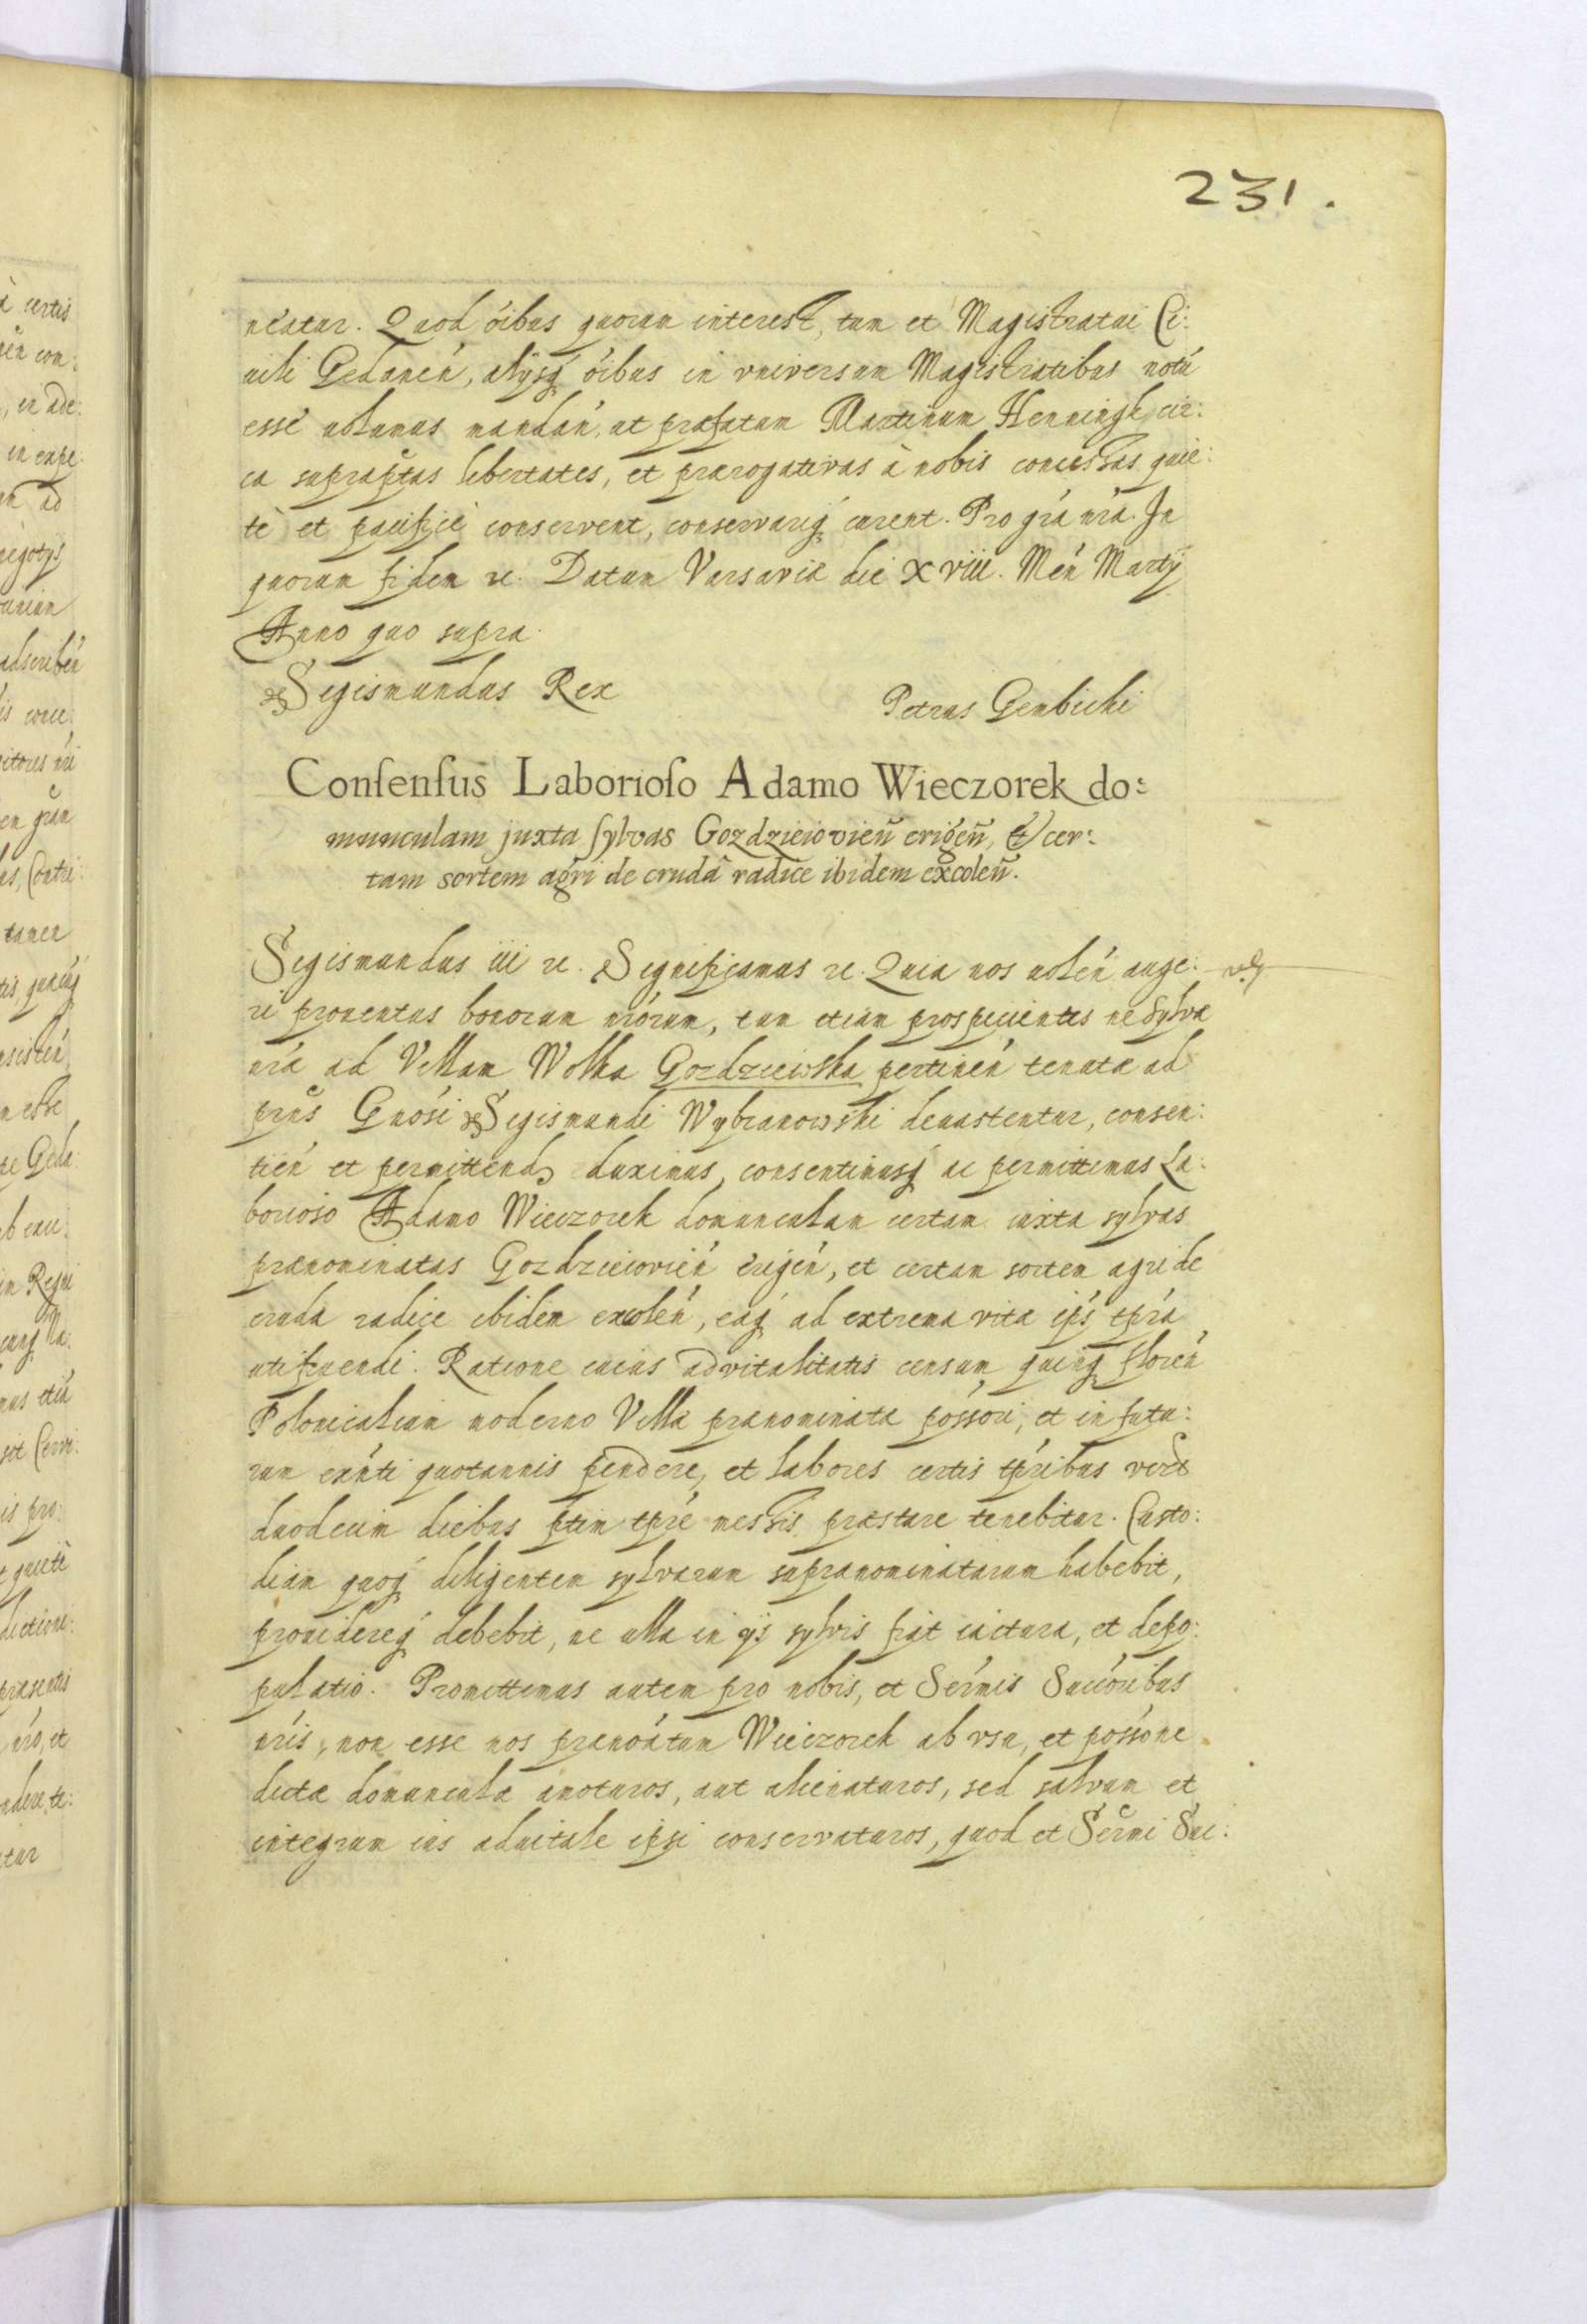 231.
neatur. Quod oı̄bus quorum interest, tum et Magistratui Ci:
uili Gedanen̄, alijsq́ oı̄bus in vniversum Magistratibus notū
esse uolumus mandan̄, ut præfatum Martinum Henningk cir:
ca suprap̄tas libertates, et prærogativas à nobis concessas quie:
tè et pacificè conservent, conservariq́ curent. Pro grā nrā. In
quorum fidem ꝛc. Datum Varsaviæ die XVIII. Men̄ Martij
Anno quo supra.
Sigismundus Rex
Petrus Gembicki
Conſenſus Laborioſo Adamo Wieczorek do:
munculam juxta ſylvas Gozdzieiovien̄ erigen̄, & cer:
tam sortem agri de crudâ radice ibidem excolen̄.
Sigismundus iii ꝛc. Significamus ꝛc. Quia nos uolen̄ auge:
ri prouentus bonorum nrōrum, tum etiam prospicientes ne sylvæ
nrǣ ad Villam Wolka Gozdzieiwska pertinen̄ tenutæ ad
prn̄s Gnōsi Sigismundi Wybranowski deuastentur, consen:
tien̄ et permittend̄ duximus, consentimusq́ ac permittimus La:
borioso Adamo Wieczorek domunculam certam iuxta sylvas
prænominatas Gozdzieiovien̄ erigen̄, et certam sortem agri de
cruda radice ibidem excolen̄, eaq́ ad extrema vitæ ip̄s tp̄ra
utifruendi. Ratione cuius advitalitatis censum quinq́ floren̄
Polonicalium moderno Villæ prænominatæ poss̄ori, et in futu:
rum exn̄ti quotannis pendere, et labores certis tp̄ribus
duodecim diebus p̄tim tp̄re messis præstare tenebitur. Custo:
diam quoq́ diligentem sylvarum supranominatarum habebit,
providereq́ debebit, ne ulla in ijs sylvis fiat iactura, et depo:
pulatio. Promittimus autem pro nobis, et Serm̄is Succōribus
nrīs, non esse nos prænoātum Wieczorek ab vsu, et poss̄one
dictæ domunculæ amoturos, aut alienaturos, sed salvum et
integrum ius aduitale ipsi conservaturos, quod et Serm̄i Suc: